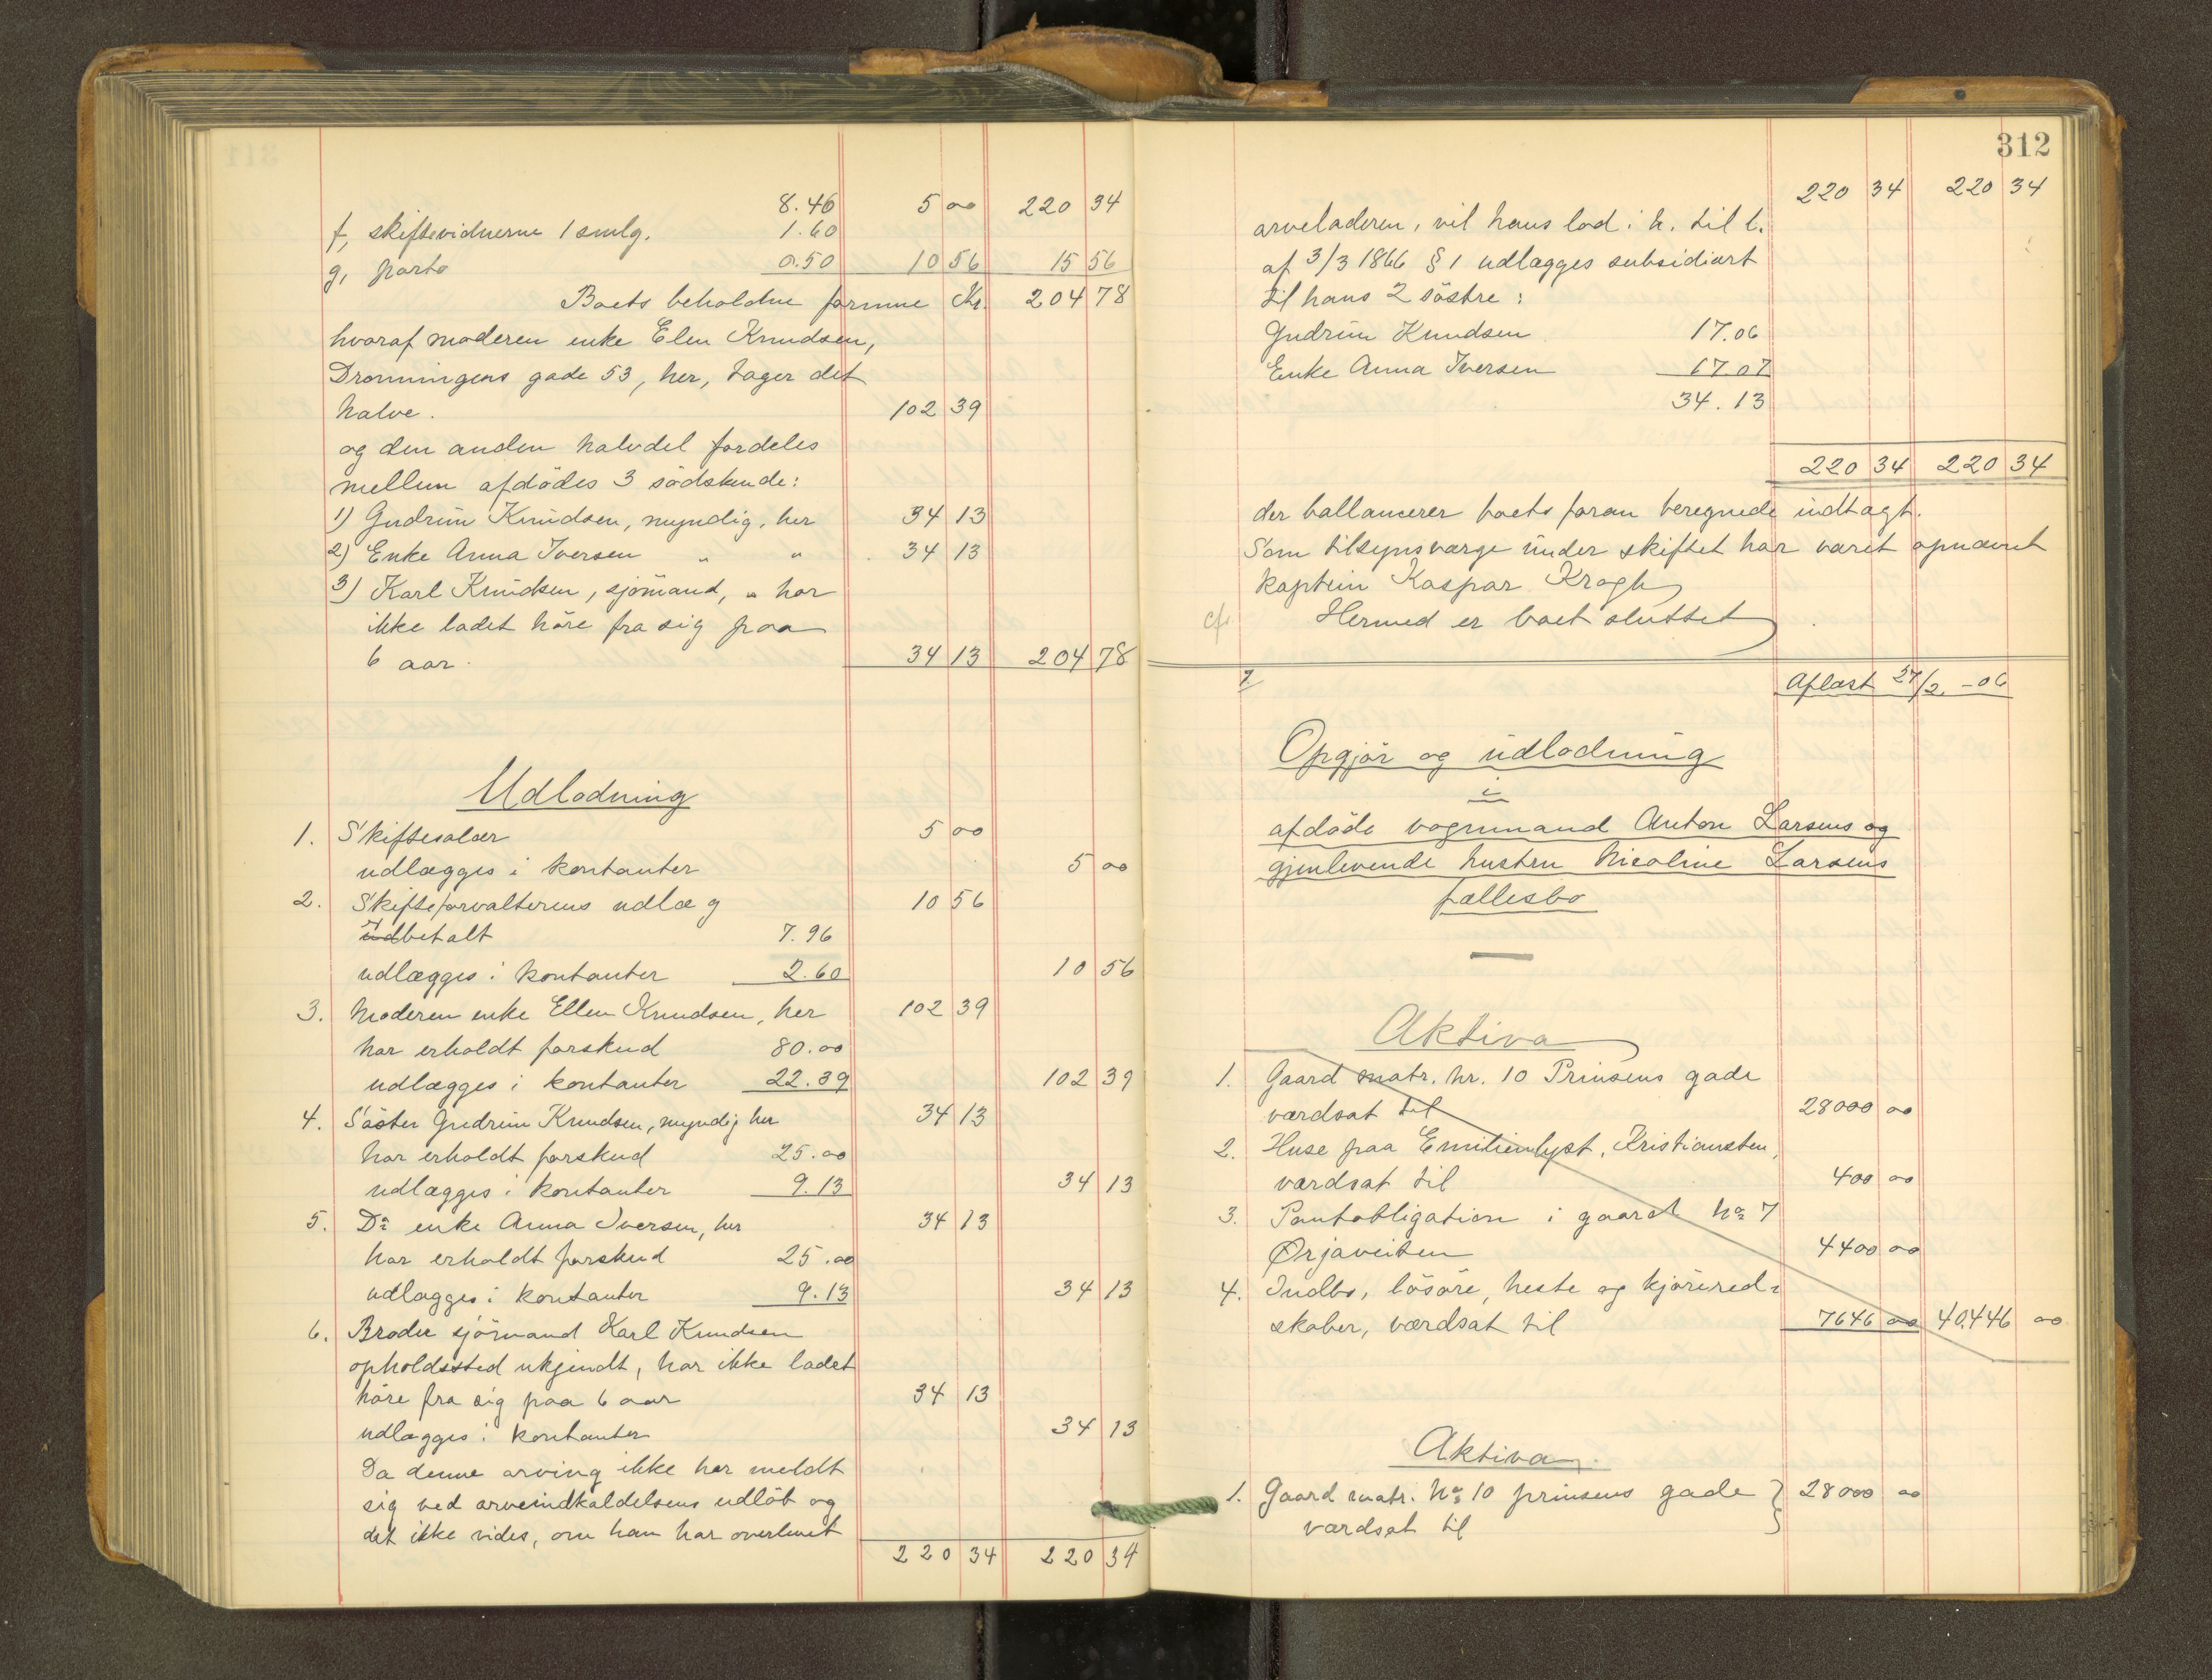 8.46 5 00 220 34
f, skiftevidnerne 1 smlg. 1.60
g, porto 0.50 10 56 15 56
Boets beholdne formue Kr. 204 78
hvoraf moderen enke Elen Knudsen,
Dronningens gade 53, her, tager det
halve. 102 39
og den anden halvdel fordeles
mellem afdödes 3 södskende:
1) Gudrun Knudsen, myndig, her 34 13
2) Enke Anna Iversen " " 34 13
3) Karl Knudsen, sjömand, " har
ikke ladet höre fra sig paa
6 aar. 34 13 204 78
Udlodning
1. Skiftesalær 5 00
udlægges i kontanter 5 00
2. Skifteforvalterens udlæg 10 56
udbetalt 7.96
udlægges i kontanter 2.60 10 56
3. Moderen enke Ellen Knudsen, her 102 39
har erholdt forskud 80.00
udlægges i kontanter 22.39 102 39
4. Söster Gudrun Knudsen, myndig her 34 13
har erholdt forskud 25.00
udlægges i kontanter 9.13 34 13
5. Do enke Anna Iversen, her 34 13
har erholdt forskud 25.00
udlægges i kontanter 9.13 34 13
6. Broder sjömand Karl Knudsen
opholdssted ukjendt, har ikke ladet
höre fra sig paa 6 aar 34 13
udlægges i kontanter 34 13
Da denne arving ikke har meldt
sig ved arveindkaldelsens udlöb og
det ikke vides, om han har overlevet
220 34 220 34
312
220 34 220 34
arveladeren, vil hans lod i h. til l.
af 3/3 1866 § 1 udlægges subsidiært
til hans 2 söstre:
Gudrun Knudsen 17.06
Enke Anna Iversen 17.07
34.13
220 34 220 34
der ballancerer boets foran beregnede indtægt.
Som tilsynsværge under skiftet har været opnævnt
kaptein Kaspar Krogh
cfr Hermed er boet sluttet
7. Aflæst 27/2 -06
Opgjör og udlodning
i
afdöde vognmand Anton Larsens og
gjenlevende hustru Nicoline Larsens
fællesbo
Aktiva
1. Gaard matr. nr. 10 Prinsens gade
værdsat til 28000 00
2. Huse paa Emilienlyst, Kristiansten,
værdsat til 400 00
3. Pantobligation i gaard No 7
Ørjaveiten 4400 00
4. Indbo, lösöre, heste og kjörered=
skaber, værdsat til 7646 00 40,446 00
Aktiva
1. Gaard matr. No 10 prinsens gade } 28000 00
værdsat til